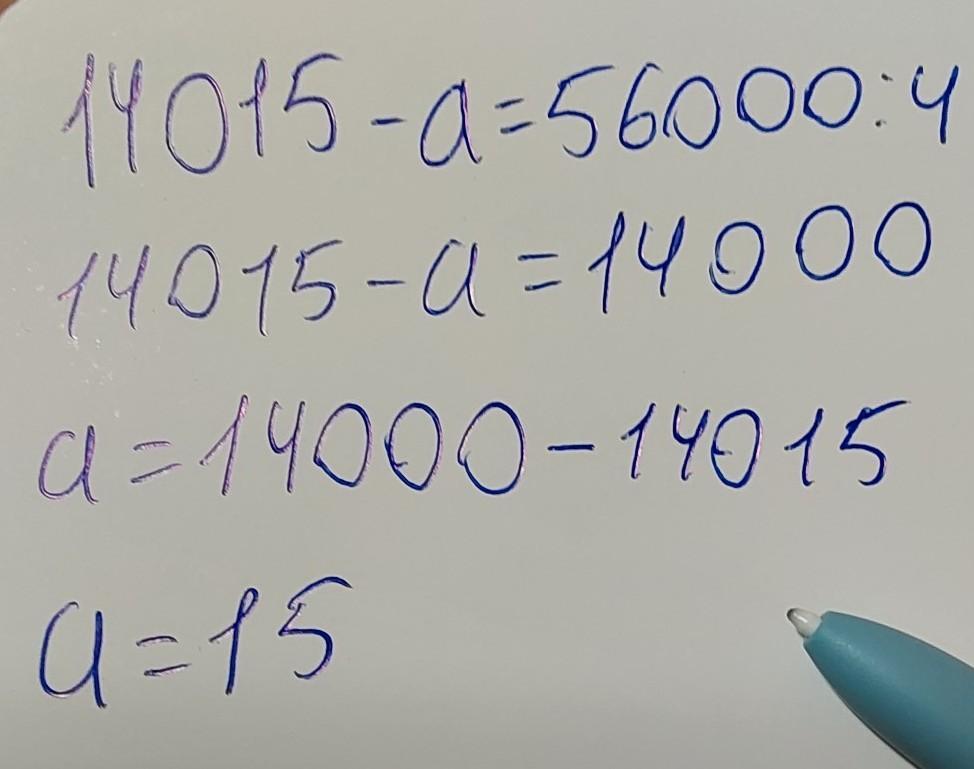 14015-a=56000:4
14015-a=14000
a=14000-14015
a=15